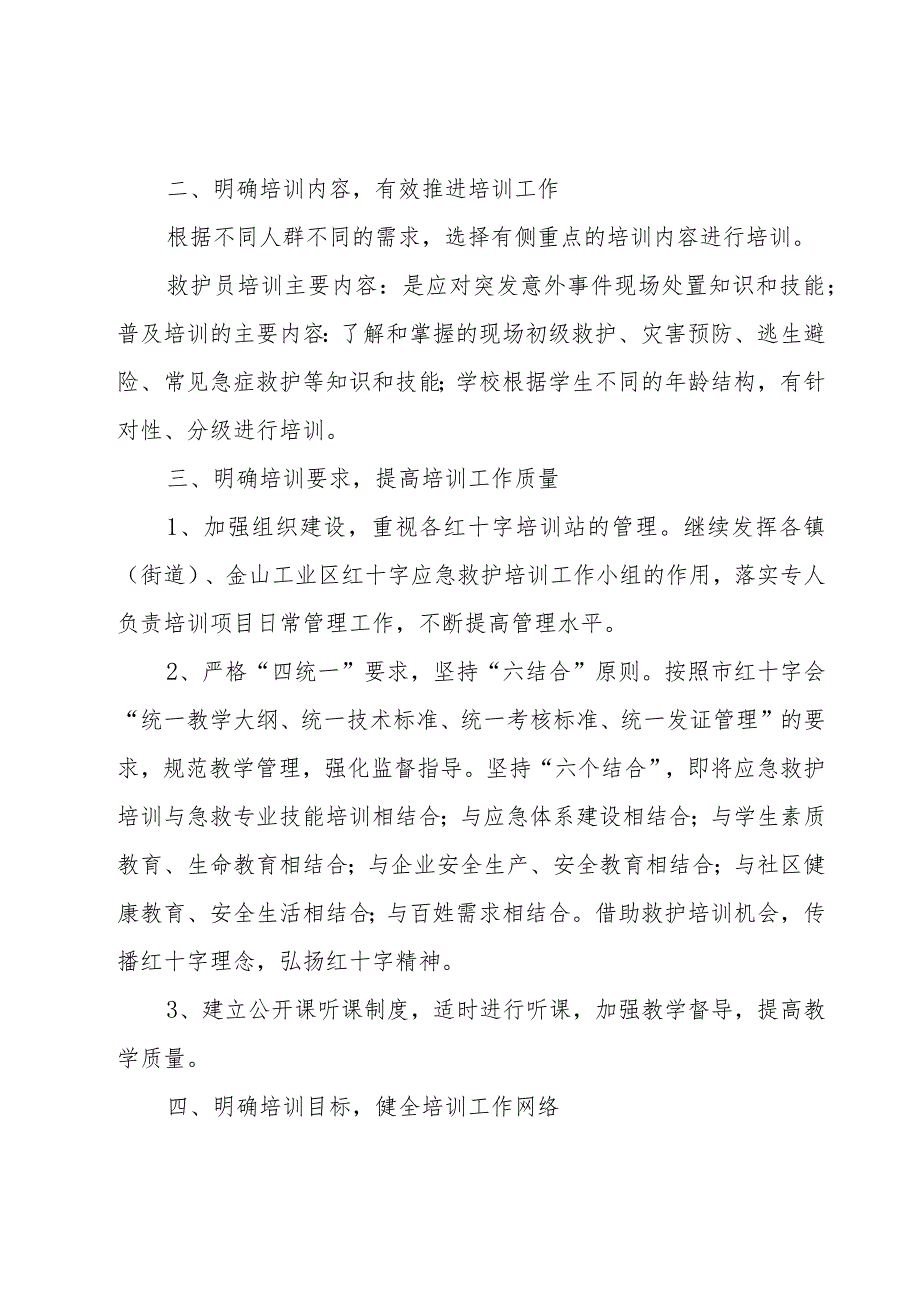 二、明确培训内容，有效推进培训工作
根据不同人群不同的需求，选择有侧重点的培训内容进行培训。
救护员培训主要内容：是应对突发意外事件现场处置知识和技能；
普及培训的主要内容：了解和掌握的现场初级救护、灾害预防、逃生避
险、常见急症救护等知识和技能；学校根据学生不同的年龄结构，有针
对性、分级进行培训。
三、明确培训要求，提高培训工作质量
1、加强组织建设，重视各红十字培训站的管理。继续发挥各镇
（街道）、金山工业区红十字应急救护培训工作小组的作用，落实专人
负责培训项目日常管理工作，不断提高管理水平。
2、严格“四统一”要求，坚持“六结合”原则。按照市红十字会
“统一教学大纲、统一技术标准、统一考核标准、统一发证管理”的要
求，规范教学管理，强化监督指导。坚持“六个结合”，即将应急救护
培训与急救专业技能培训相结合；与应急体系建设相结合；与学生素质
教育、生命教育相结合；与企业安全生产、安全教育相结合；与社区健
康教育、安全生活相结合；与百姓需求相结合。借助救护培训机会，传
播红十字理念，弘扬红十字精神。
3、建立公开课听课制度，适时进行听课，加强教学督导，提高教
学质量。
四、明确培训目标，健全培训工作网络